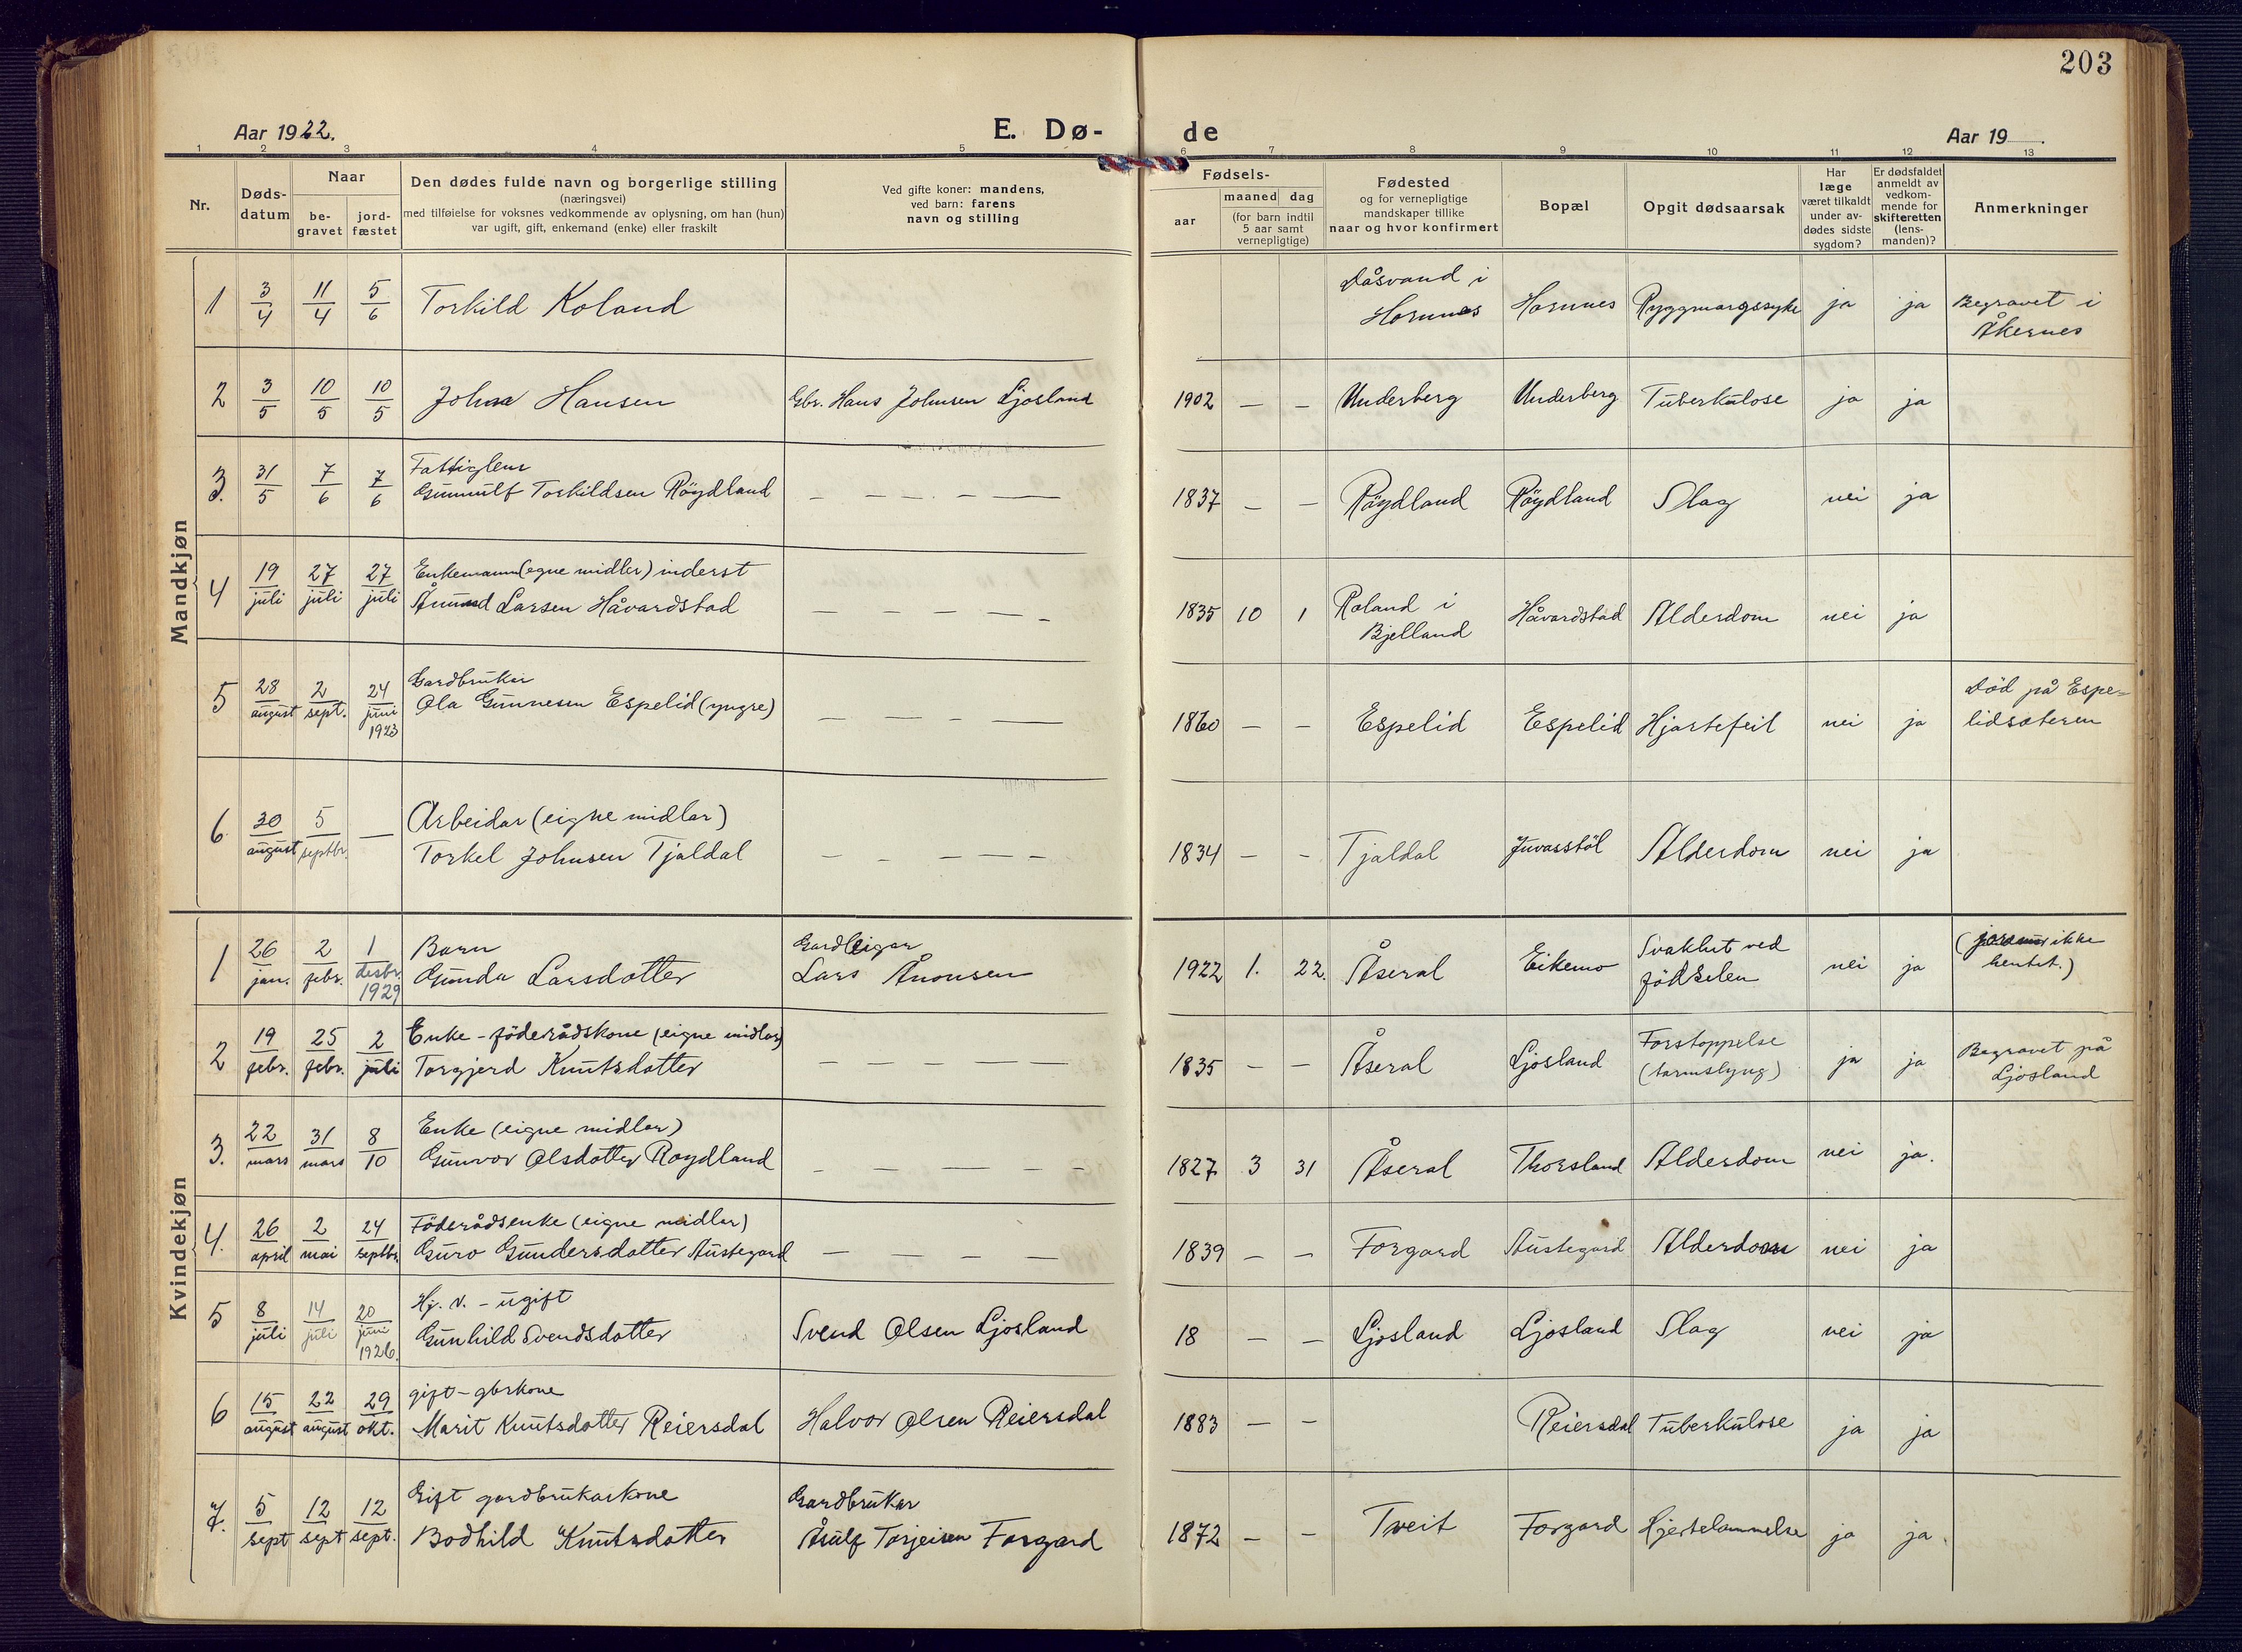 203
Aar 1922.
E. Dø-
de
Aar 19
1 2 3 4 5 6 7 8 9 10 11 12 13
Nr.
Døds-
datum
Naar
be-
gravet
jord-
fæstet
Den dødes fulde navn og borgerlige stilling
(næringsvei)
med tilføielse for voksnes vedkommende av oplysning, om han (hun)
var ugift, gift, enkemand (enke) eller fraskilt
Ved gifte koner: mandens,
ved barn: farens
navn og stilling
Fødsels-
aar
maaned dag
(for barn indtil
5 aar samt
vernepligtige)
Fødested
og for vernepligtige
mandskaper tillike
naar og hvor konfirmert
Bopæl
Opgit dødsaarsak
Har
læge
været tilkaldt
under av-
dødes sidste
sygdom?
Er dødsfaldet
anmeldt av
vedkom-
mende for
skifteretten
(lens-
manden)?
Anmerkninger
Mandkjøn
1 3/4 11/4 5/6 Torkild Koland Dåsvand i Hornnes Hornnes Ryggmargssyke ja ja Begravet i Åkernes
2 3/5 10/5 10/5 Johna Hansen Gbr. Hans Johnsen Ljosland 1902 — — Underberg Underberg Tuberkulose ja ja
Fattiglem
3. 31/5 7/6 7/6 Gunnulf Torkildsen Röydland — — — — — 1837 — — Röydland Röydland Slag nei ja
Enkemann (egne midler) inderst
4 19/juli 27/juli 27/juli Ånund Larsen Håvardstad — — — — - 1835 10 1 Roland i Bjelland Håvardstad Alderdom nei ja
Gardbruker
5 28/august 2/sept. 24/juni 1923 Ola Gunnesen Espelid (yngre) — — — — 1860 — — Espelid Espelid Hjartefeil nei ja Död på Espe=
lidsæteren
Arbeidar (eigne midlar)
6 30/august 5/septbr. — Torkel Johnsen Tjaldal — - — — — 1834 — - Tjaldal Juvasstöl Alderdom nei ja
Kvindekjøn
Barn Gardeigar
1 26/jan. 2/febr. 1/desbr. 1929 Gunda Larsdotter Lars Ånonsen 1922 1. 22. Åseral Eikemo Svakhet ved födselen nei ja ikke
hentet.)
Enke - föderådskone (eigne midlar)
2 19/febr. 25/febr. 2/juli Torgjerd Knutsdotter — — — — 1835 — — Åseral Ljosland Forstoppelse (tarmslyng) ja ja Begravet på
Ljosland
Enke (eigne midlar)
3. 22/mars 31/mars 8/10 Gunvor Olsdotter Røydland - — — — - 1827 3 31 Åseral Thorsland Alderdom nei ja.
Föderådsenke (eigne midlar)
4. 26/april 2/mai 24/septbr. Guro Gundersdotter Austegard — — — — 1839 — — Forgard Austegard Alderdom nei ja
Hj. v. - ugift
5 8/juli 14/juli 20/juni 1926. Gunhild Svendsdotter Svend Olsen Ljosland 18 — — Ljosland Ljosland Slag nei ja
gift - gbrkone
6 15/august 22/august 29/okt. Marit Knutsdotter Reiersdal Halvor Olsen Reiersdal 1883 — — Reiersdal Tuberkulose ja ja
Gift gardbrukarkone Gardbrukar
7. 5/sept 12/sept 12/sept. Bodhild Knutsdotter Åsulf Torjeisen Forgard 1872 — — Tveit Forgard Hjertelammelse ja ja.